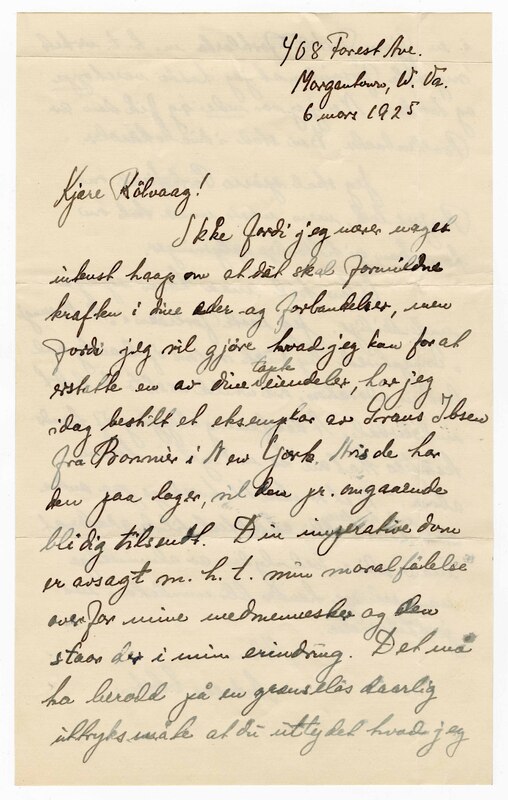 408 Forest Ave.
Morgantown, W. Va.
6 mars 1925
Kjære Rölvaag!
Ikke fordi jeg nærer noget
intenst haap om at det skal formildne
kraften i dine eder og forbandelser, men
fordi jeg vil gjöre hvad jeg kan for at
erstatte en av dine tapte eiendeler, har jeg
idag bestilt et eksemplar av Grans Ibsen
fra Bonnier i New York. Hvis de har
den paa lager, vil den pr. omgaaende
bli dig tilsendt. Din imperative dom
er avsagt m. h. t. min moralfölelse
overfor mine medmennesker og den
staar der i min erindring. Det må
ha berodd på en grænselös daarlig
uttryksmåte at du uttydet hvad jeg